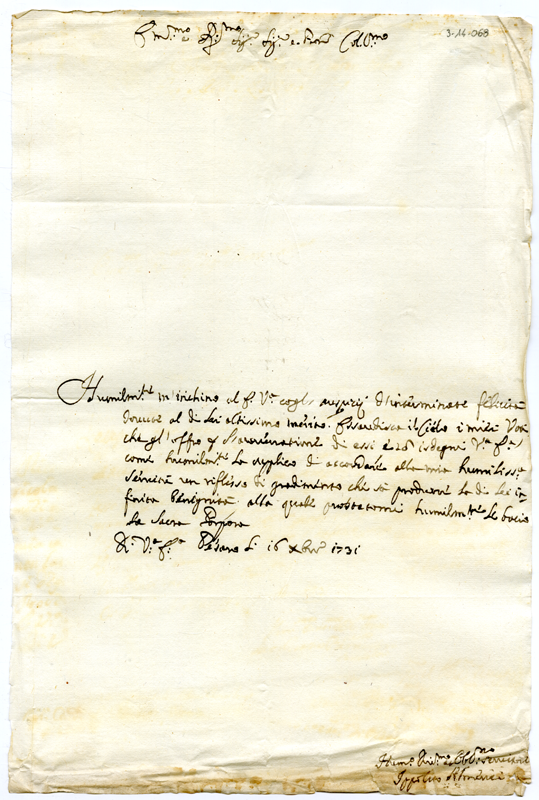 Em.mo e R.mo Sig.r Sig.r e Pron Col.mo
3-14-068
Humilm.te m'inchino al E. V.a cogl' augurij d'interminate felicità
dovute al di Lei altissimo merito. Esaudisca il Cielo i miei Voti
che gl'offro osservazione di essi e si degni V.a E.a
come humilm.te La supplico di accordare alla mia humiliss.a
servitù un riflesso di gradimento che sà produrre la di Lei in-
finita Benignità alla quale prostratomi humilm.te Le bacio
La Sacra Porpora
D. V.a E.a Pesaro li 16 Xbre 1731
Hum.o Div.mo Obb.mo Servitore
Ippolito